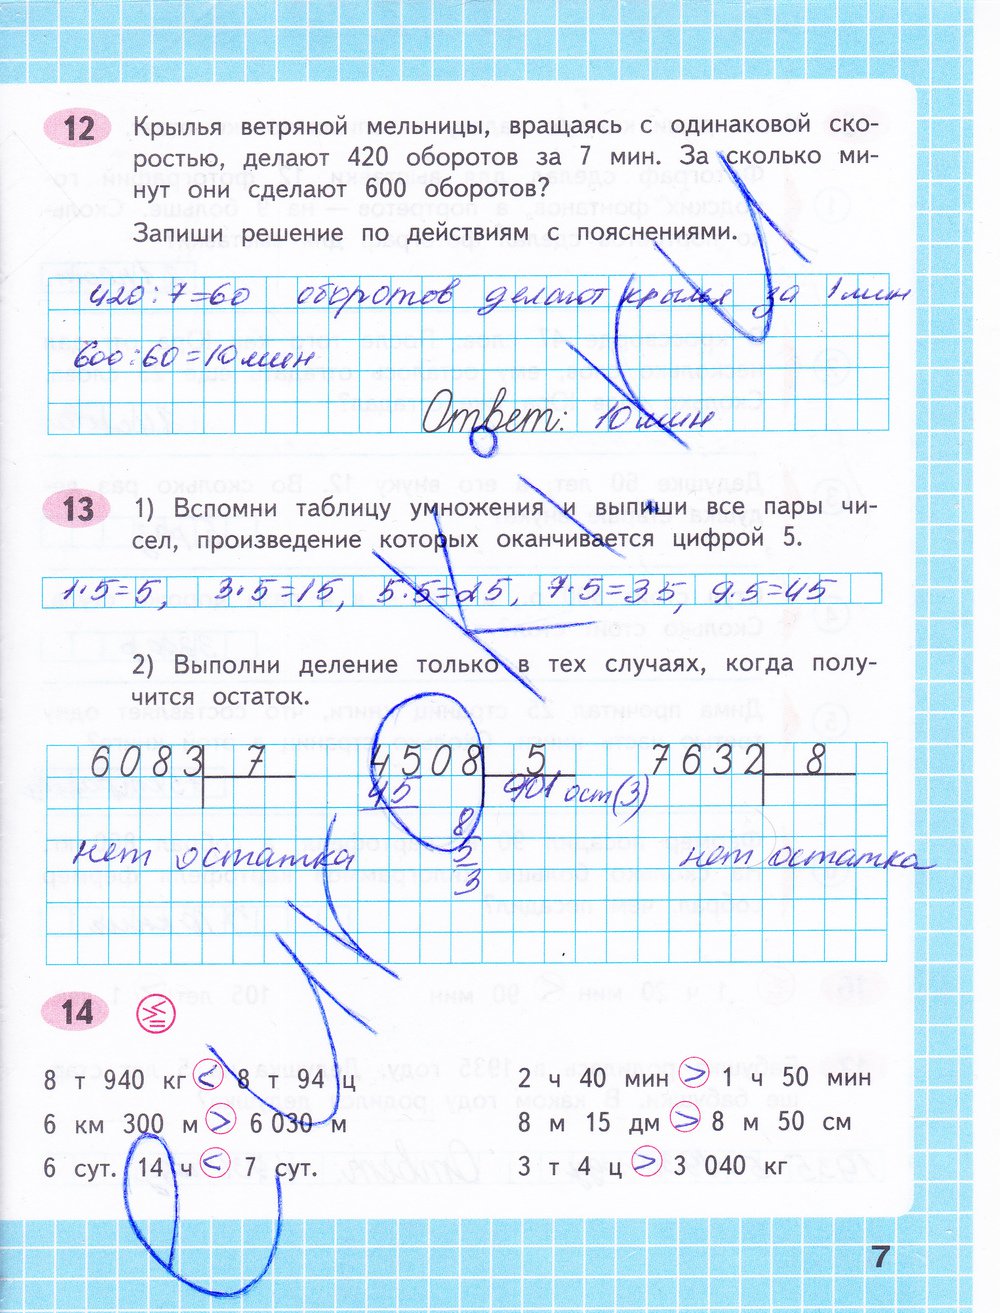 12 Крылья ветряной мельницы, вращаясь с одинаковой ско-
ростью, делают 420 оборотов за 7 мин. За сколько ми-
нут они сделают 600 оборотов?
Запиши решение по действиям с пояснениями.
420:7=60 оборотов делают крылья за 1 мин
600:60=10 мин
Ответ: 10 мин
13 1) Вспомни таблицу умножения и выпиши все пары чи-
сел, произведение которых оканчивается цифрой 5.
1·5=5, 3·5=15, 5·5=25, 7·5=35, 9·5=45
2) Выполни деление только в тех случаях, когда полу-
чится остаток.
6083 7 4508 5 7632 8
45 901 ост(3)
8
нет остатка 5 нет остатка
3
14
8 т 940 кг < 8 т 94 ц 2 ч 40 мин > 1 ч 50 мин
6 км 300 м > 6 030 м 8 м 15 дм > 8 м 50 см
6 сут. 14 ч < 7 сут. 3 т 4 ц > 3 040 кг
7